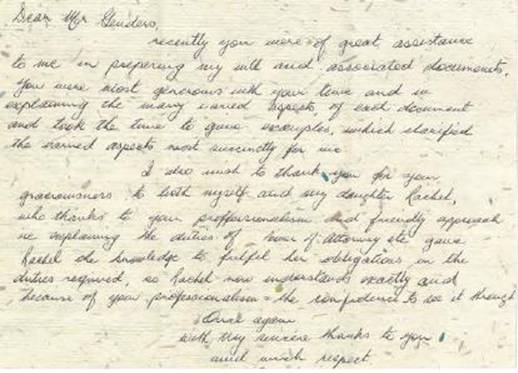 Dear Mr Genders,
recently you were of great assistance
to me in prepering my will and associated documents.
You were most generous with your time and in
explaining the many varied aspects, of each document
and took the time to gave examples, which clarified
the varied aspects most succinctly for me
I also wish to thank you for your
graciousness to both myself and my daughter Rachel,
who thanks to your proffessionalism and friendly approach
in explaining the duties of Power of Attorney etc gave
Rachel the knowledge to fulfel her obligations in the
duties required, so Rachel now understands exactly and
because of your professionalism the confidence to see it through
Once again
with my sincere thanks to you
and much respect